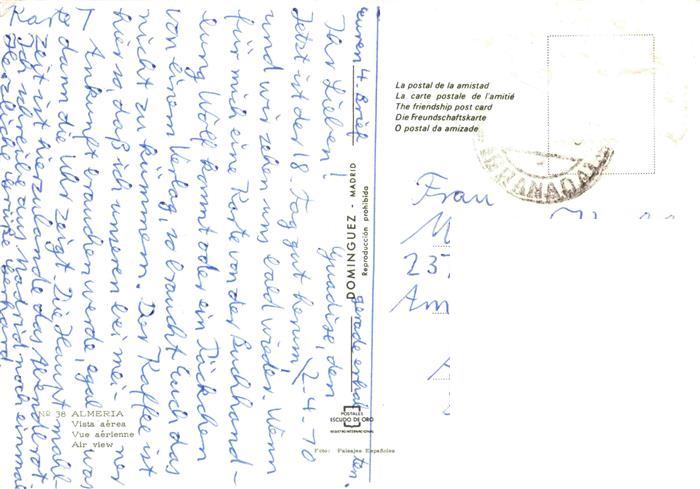 euren 4. Brief gerade erhalten.
Guadix, den
Ihr Lieben! 2-4-70
Jetzt ist der 18. Tag gut herum,
und wir sehen uns bald wieder. Wenn
für mich eine Karte von der Buchhand-
lung Wolf kommt oder ein Päckchen
von einem Verlag, so braucht Euch das
nicht zu kümmern. Der Kaffee ist
hier so daß ich unseren bei mei- ner
Ankunft brauchen werde, egal was
dann die Uhr zeigt. Die Haupt- mahl-
zeit ist hierzulande das Abendbrot
Ich schreibe aus Madrid noch einmal
Karte
Herzliche Grüße Gerhard.
Nº 38 ALMERIA
Vista aérea
Vue aérienne
Air view
DOMINGUEZ - MADRID
Reproducción prohibida
POSTALES
ESCUDO DE ORO
REGISTRO INTERNACIONAL
Foto: Paisajes Españoles
La postal de la amistad
La carte postale de l'amitié
The friendship post card
Die Freundschaftskarte
O postal da amizade
GRANADA
Frau
M
23
Am